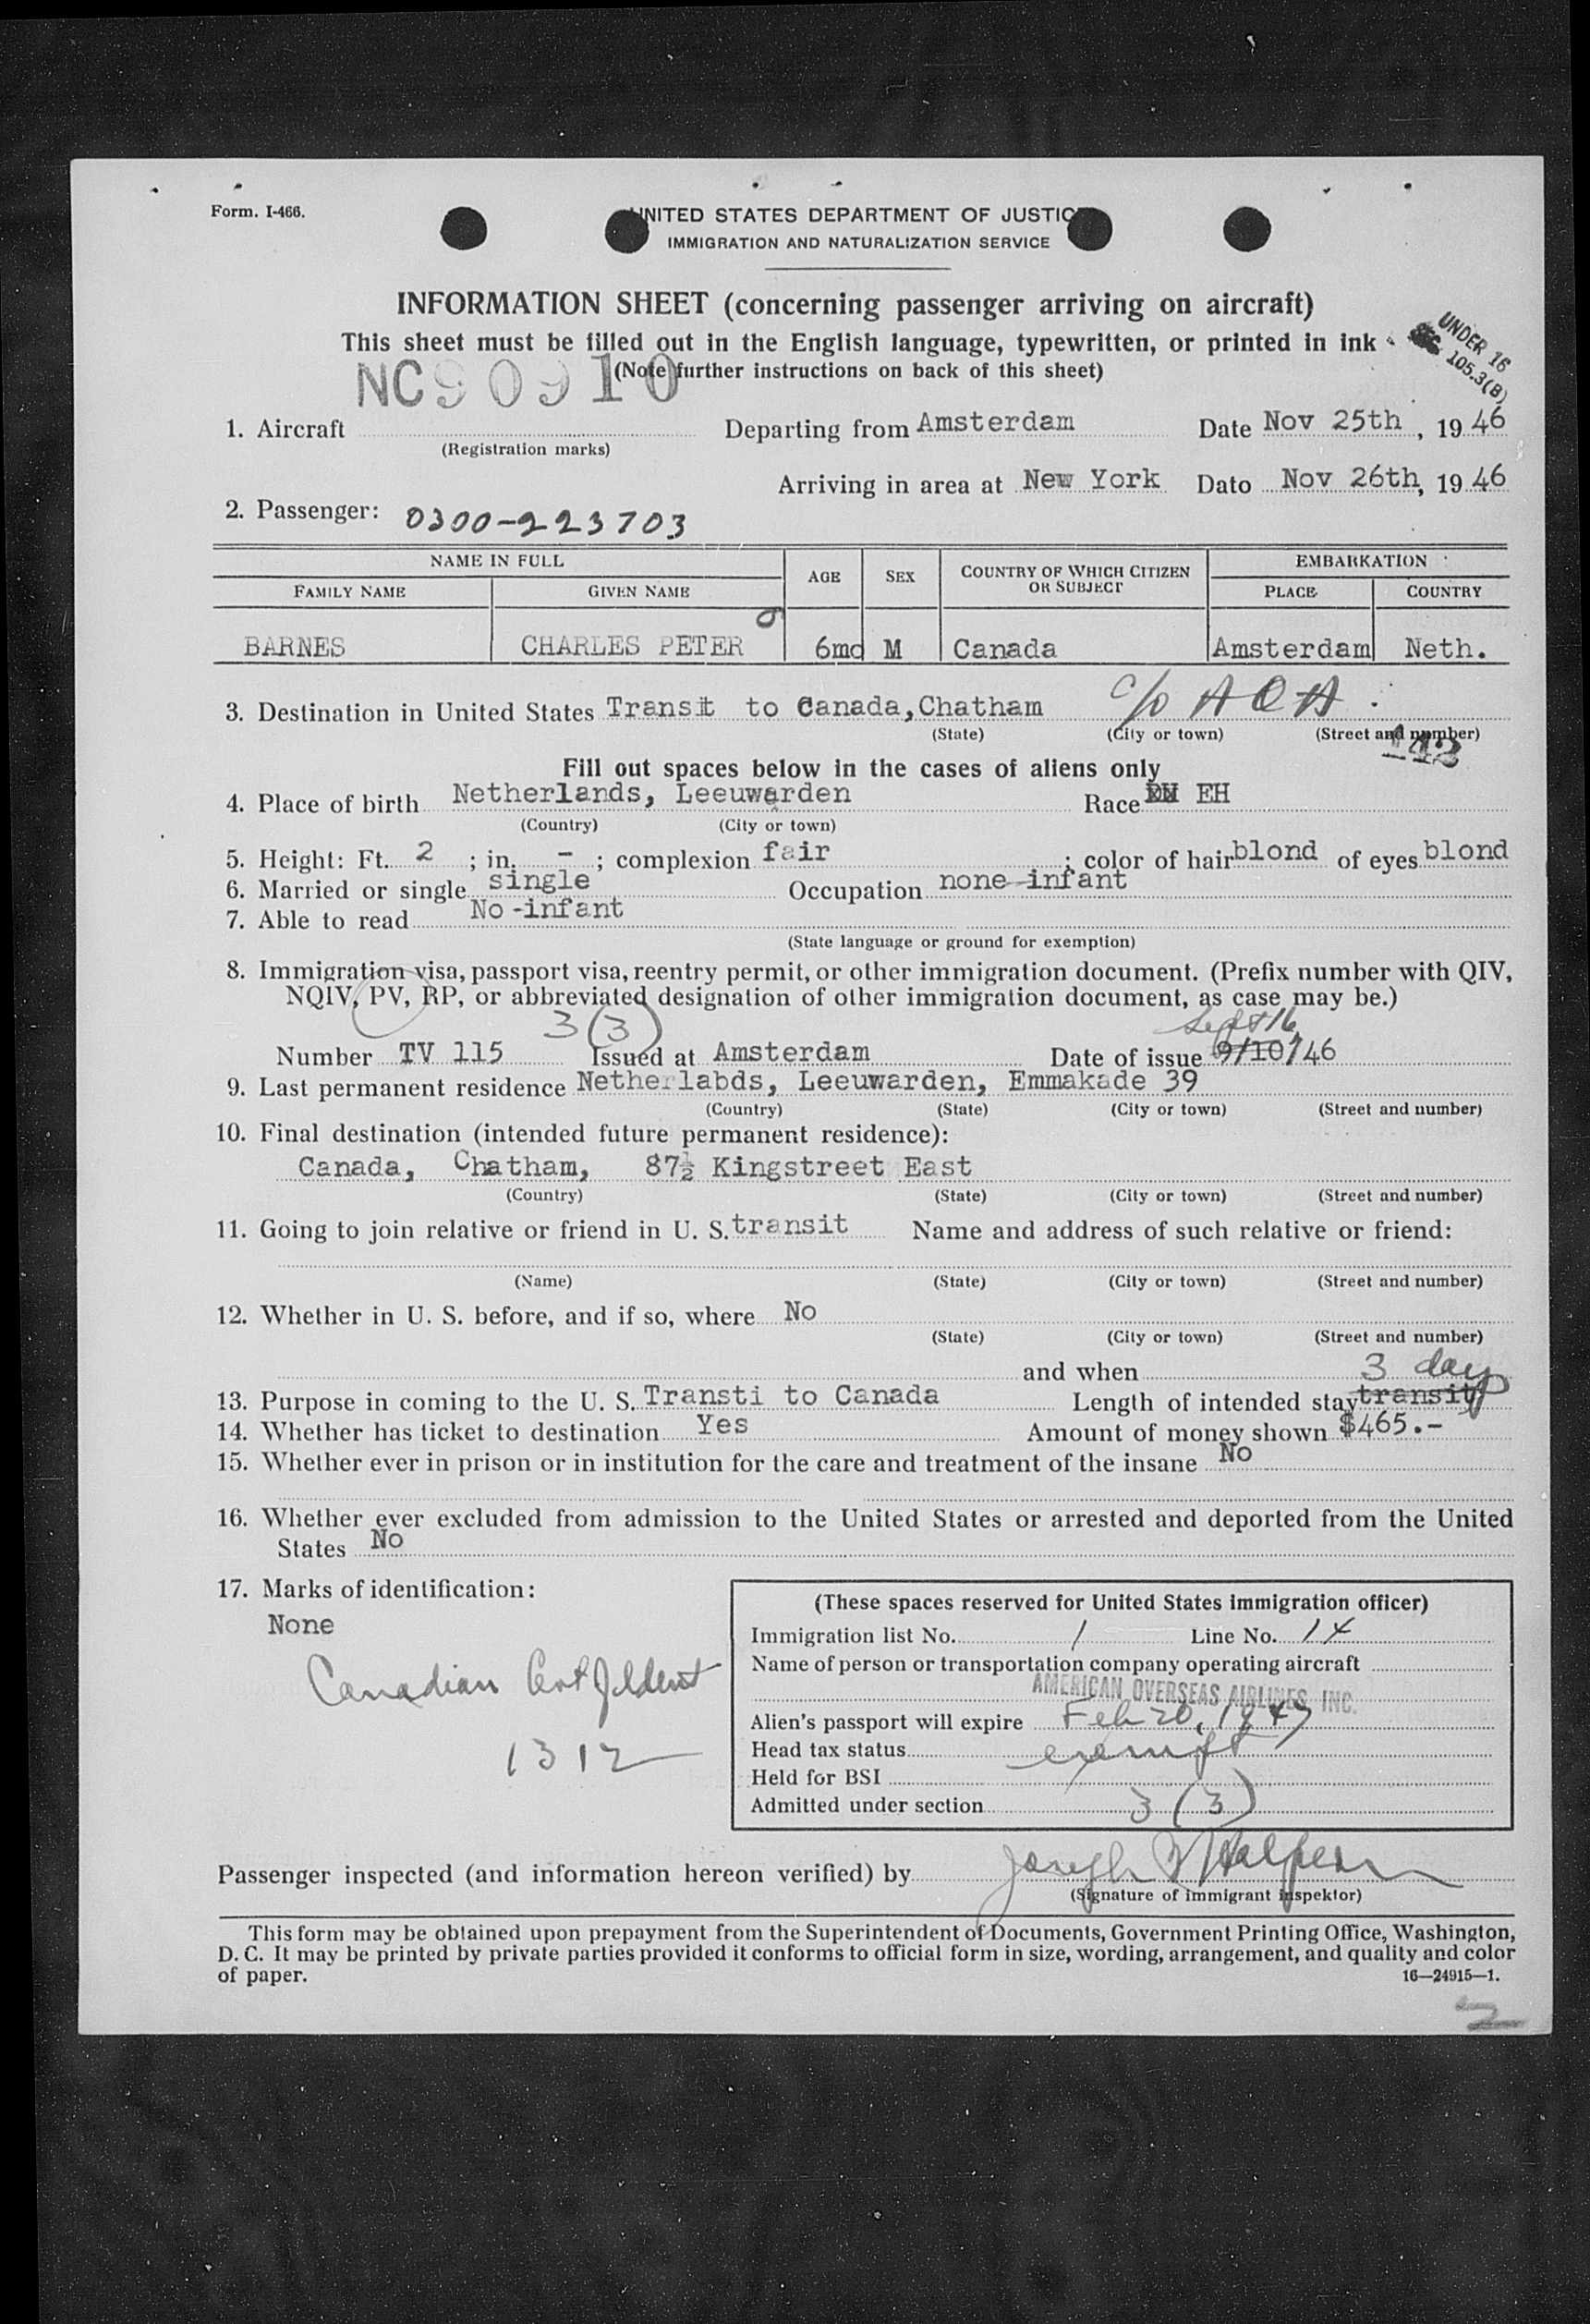 Form. I-466.
UNITED STATES DEPARTMENT OF JUSTIC
IMMIGRATION AND NATURALIZATION SERVICE
INFORMATION SHEET (concerning passenger arriving on aircraft)
This sheet must be filled out in the English language, typewritten, or printed in ink
UNDER 16
105.3(B)
NC90910
(Note further instructions on back of this sheet)
1. Aircraft Departing from Amsterdam Date Nov 25th, 19 46
(Registration marks)
Arriving in area at New York Dato Nov 26th, 19 46
2. Passenger: 0300-223703
NAME IN FULL AGE SEX COUNTRY OF WHICH CITIZEN OR SUBJECT EMBARKATION
FAMILY NAME GIVEN NAME PLACE COUNTRY
BARNES CHARLES PETER 6mo M Canada Amsterdam Neth.
3. Destination in United States Transit to Canada, Chatham c/o AOA
(State) (City or town) (Street and number)
142
Fill out spaces below in the cases of aliens only
4. Place of birth Netherlands, Leeuwarden Race EH
(Country) (City or town)
5. Height: Ft. 2 ; in. - ; complexion fair ; color of hair blond of eyes blond
6. Married or single single Occupation none-infant
7. Able to read No-infant
(State language or ground for exemption)
8. Immigration visa, passport visa, reentry permit, or other immigration document. (Prefix number with QIV,
NQIV, PV, RP, or abbreviated designation of other immigration document, as case may be.)
3(3) Sept 16
Number TV 115 Issued at Amsterdam Date of issue 9/10/46
9. Last permanent residence Netherlabds, Leeuwarden, Emmakade 39
(Country) (State) (City or town) (Street and number)
10. Final destination (intended future permanent residence):
Canada, Chatham, 87½ Kingstreet East
(Country) (State) (City or town) (Street and number)
11. Going to join relative or friend in U. S. transit Name and address of such relative or friend:
(Name) (State) (City or town) (Street and number)
12. Whether in U. S. before, and if so, where No
(State) (City or town) (Street and number)
and when
3 days
13. Purpose in coming to the U. S. Transti to Canada Length of intended stay transit
14. Whether has ticket to destination Yes Amount of money shown $465.-
15. Whether ever in prison or in institution for the care and treatment of the insane No
16. Whether ever excluded from admission to the United States or arrested and deported from the United
States No
17. Marks of identification:
None
Canadian Cert Ident
1312
(These spaces reserved for United States immigration officer)
Immigration list No. 1 Line No. 14
Name of person or transportation company operating aircraft
AMERICAN OVERSEAS AIRLINES, INC.
Alien's passport will expire Feb 20, 1947
Head tax status exempt
Held for BSI
Admitted under section 3(3)
Passenger inspected (and information hereon verified) by Joseph Halpern
(Signature of immigrant inspektor)
This form may be obtained upon prepayment from the Superintendent of Documents, Government Printing Office, Washington,
D. C. It may be printed by private parties provided it conforms to official form in size, wording, arrangement, and quality and color
of paper. 16—24915—1.
2